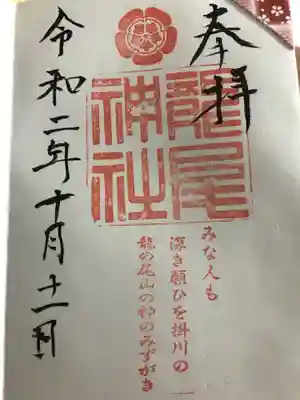 奉拝
龍尾
神社
みな人も
深き願ひを掛川の
龍の尾山の神のみずがき
令和二年十月十一日